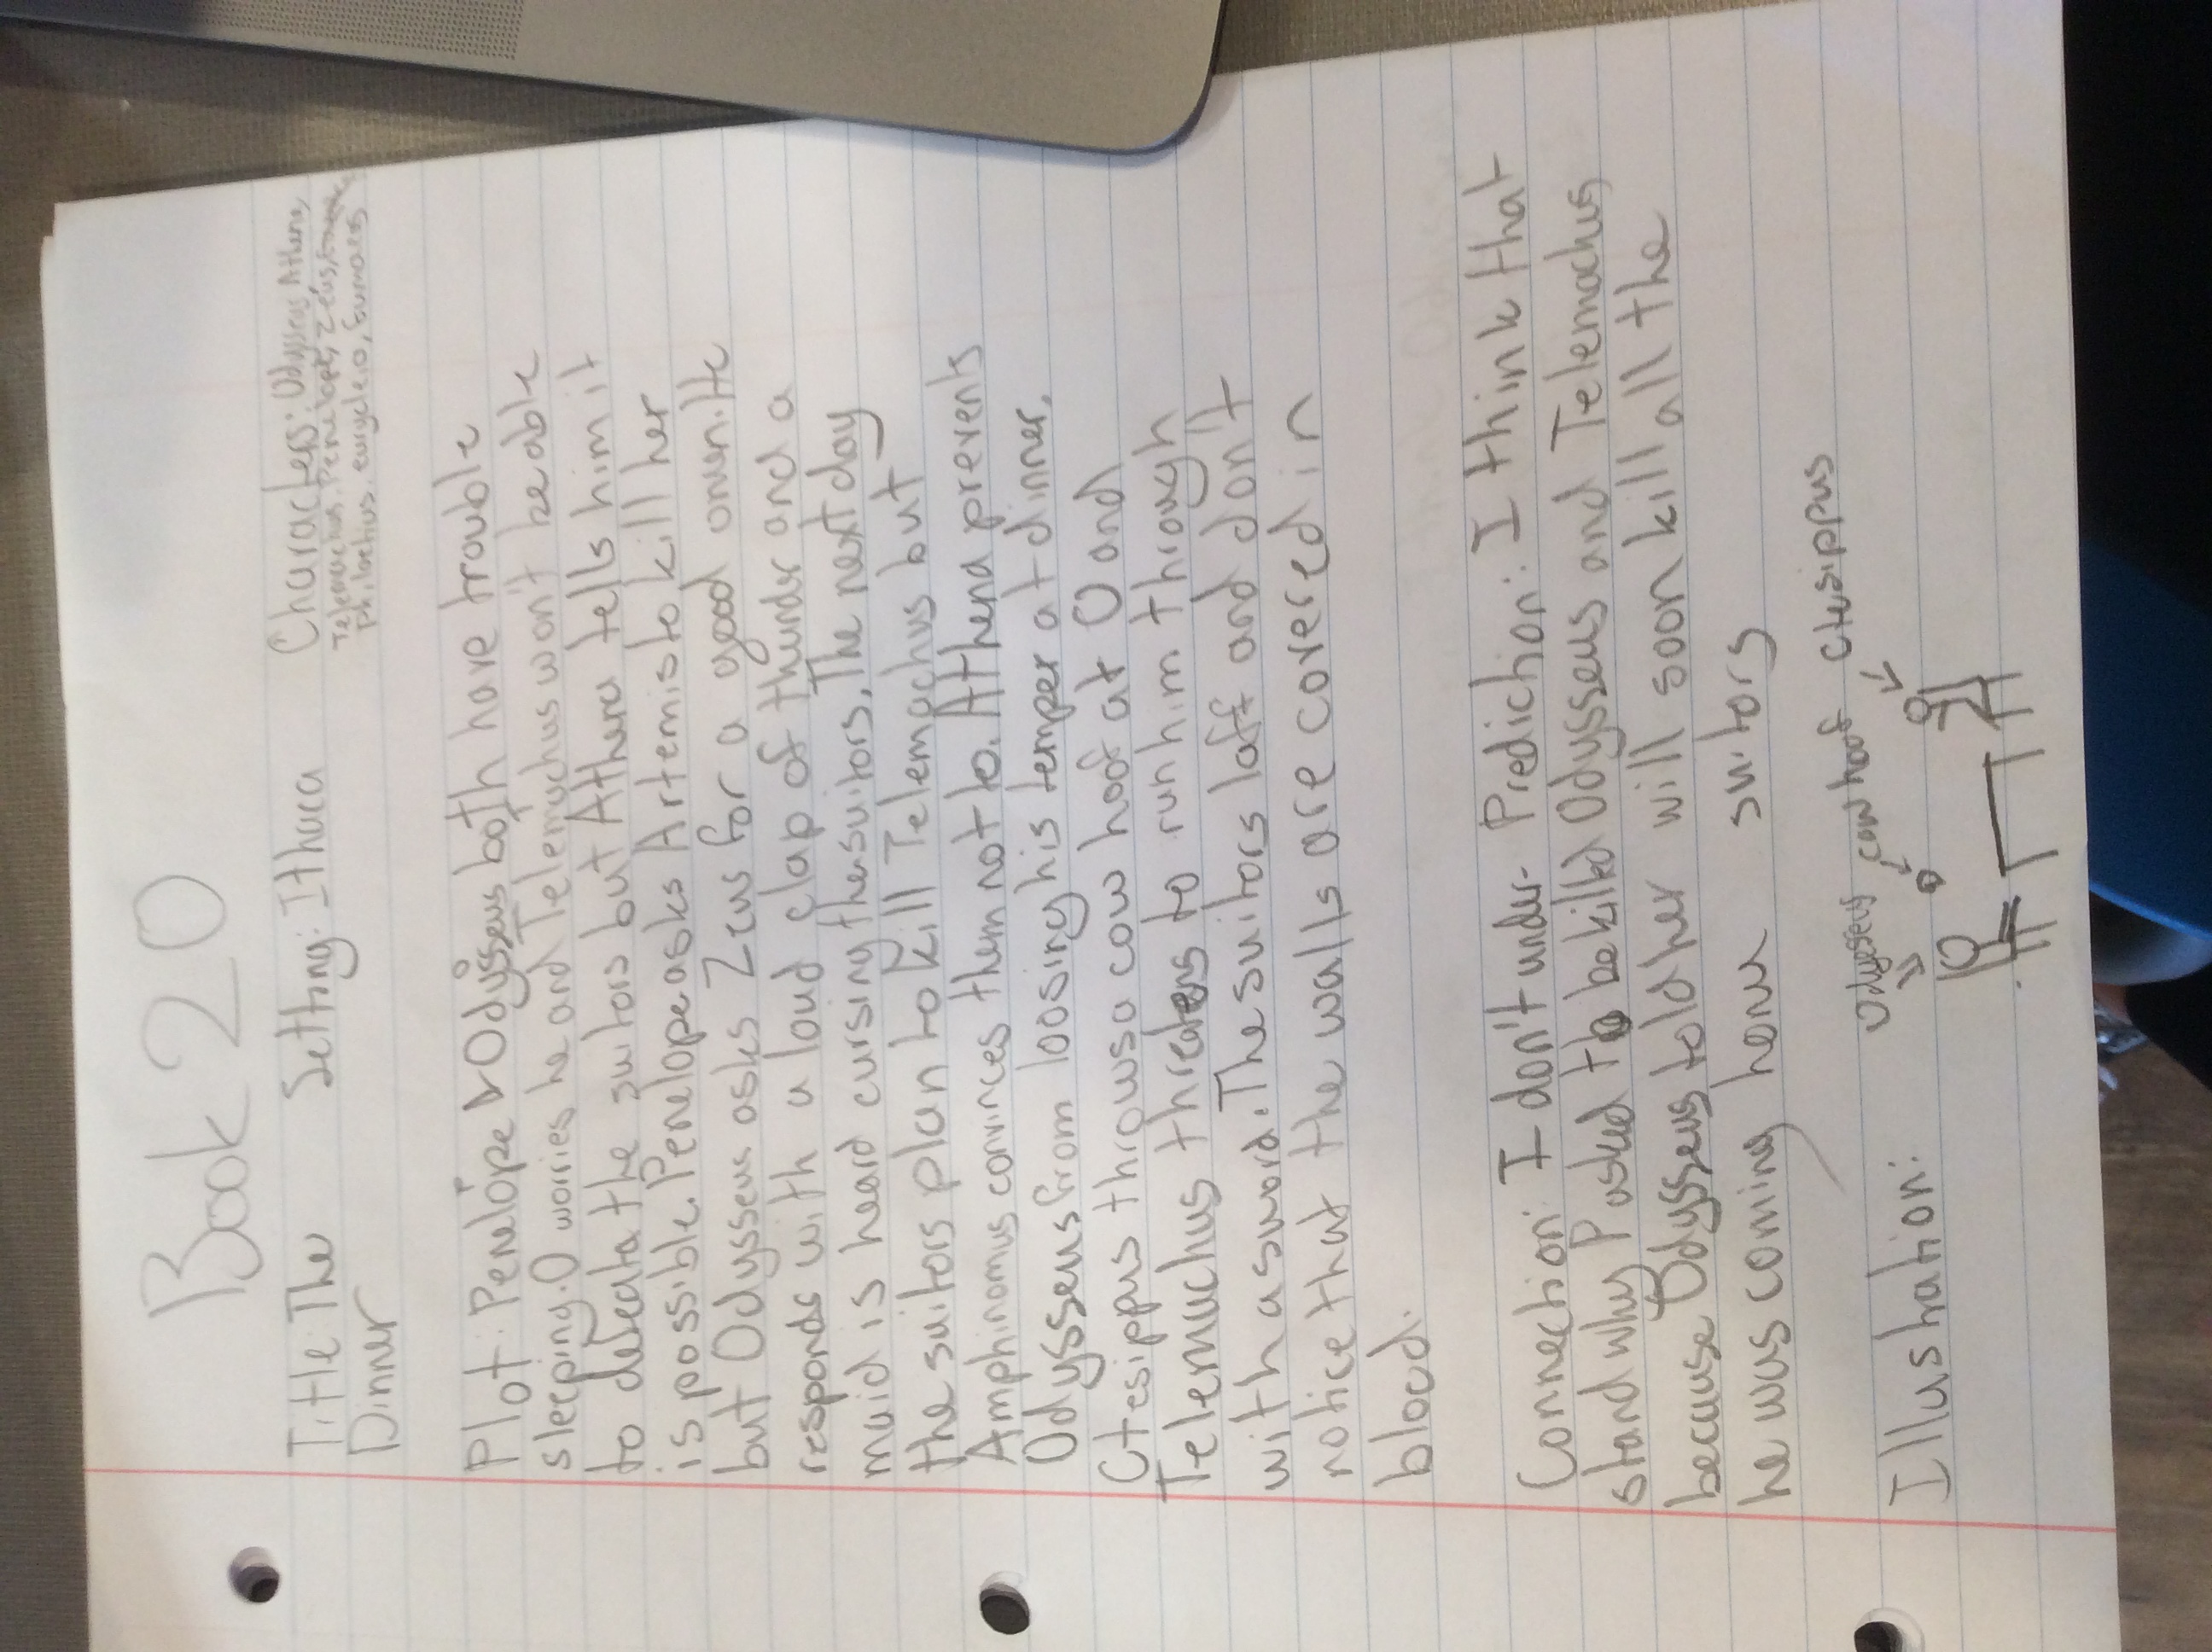 Book 20
Title: The Setting: Ithaca Characters: Odysseus, Athena,
Dinner Telemachus, Penelope, Zeus,
Philoetius, eurycleia, Eumaeus
Plot: Penelope & Odysseus both have trouble
sleeping. O worries he and Telemachus won't be able
to defeata the suitors but Athena tells him it
is possible. Penelope asks Artemis to kill her
but Odysseus asks Zeus for a good omen. He
responds with a loud clap of thunder and a
maid is heard cursing the suitors. The next day
the suitors plan to kill Telemachus but
Amphinomus convinces them not to. Athena prevents
Odysseus from loosing his temper at dinner.
Ctesippus throws a cow hoof at O and
Telemachus threatens to run him through
with a sword. The suitors laff and don't
notice that the walls are covered in
blood.
Connection: I don't under-
stand why P asked to be killed
because Odysseus told her
he was coming home
Prediction: I think that
Odysseus and Telemachus
will soon kill all the
suitors
Illustration:
Odysseus cow hoof Ctesippus